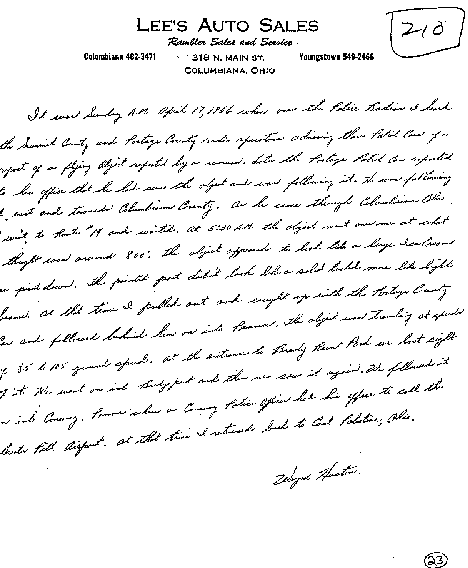 LEE'S AUTO SALES
Rambler Sales and Service
Columbiana 482-3471
318 N. MAIN ST.
Youngstown 549-2466
COLUMBIANA, OHIO
210
It was Sunday A.M. April 17, 1966 when over the Police Radio I heard
the Summit County and Portage County radio operators advising their Patrol Cars of a
report of a flying object reported by a woman. Later the Portage Patrol Car reported
to his office that he had seen the object and was following it. He was following
it east and towards Columbiana County. As he came through Columbiana Ohio
went to Route 14 and waited. At 5:20 AM the object went over me at what
thought was around 800'. The object appeared to look like a large Ice Cream
pointed down. The pointed part didn't look like a solid but more like light
beams. At that time I pulled out and caught up with the Portage County
Car and followed behind him on into Penna. The object was traveling at speeds
of 85 to 105 ground speed. At the entrance to Brady Run Park we lost sight
of it. We went on into Bridgeport and then we saw it again. We followed it
on into Conway, Penna where a Conway Police Officer had his office to call the
Pitt Airport. At that time I returned back to East Palestine, Ohio.
Wayne Huston
23